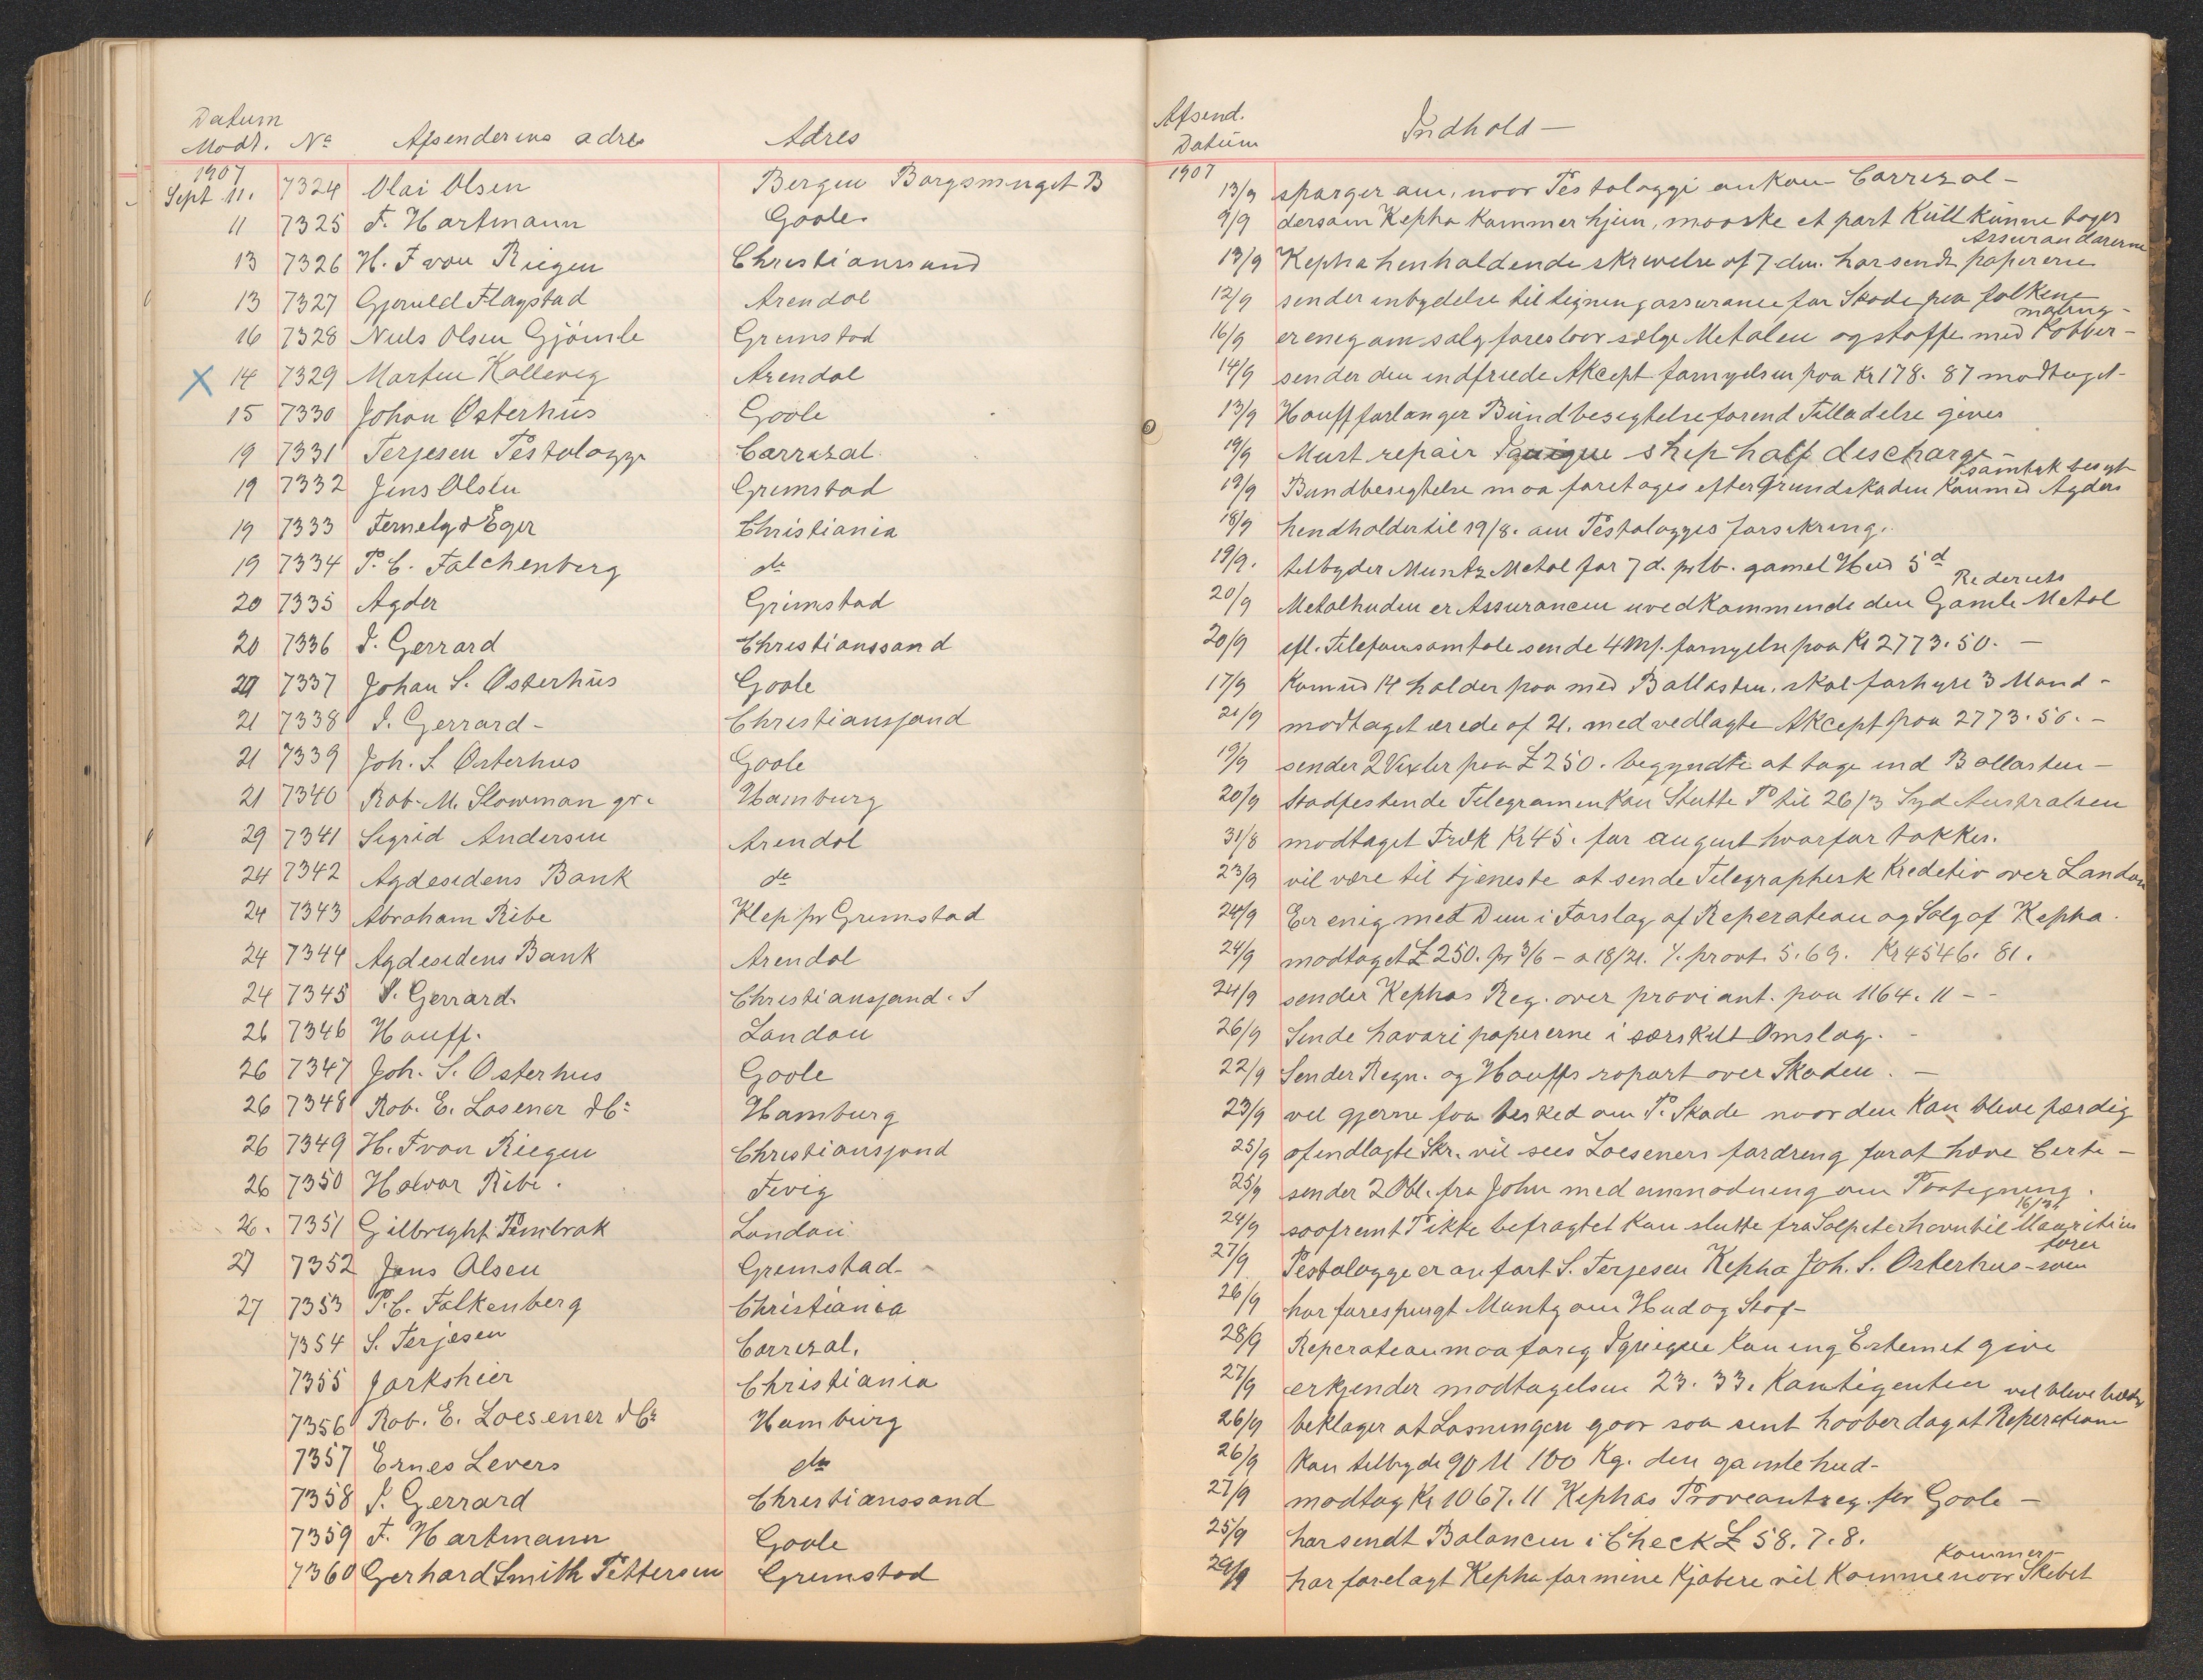 Datum
Modt. No Afsenderens adres Adres
1907
Sept 11. 7324 Olai Olsen Bergen Borgsmuget B
11 7325 F. Hartmann Goole
13 7326 H. F von Riegen Christianssund
13 7327 Gjeruld Flagstad Arendal
16 7328 Niels Olsen Gjömle Grimstad
X 14 7329 Marten Kallevig Arendal
15 7330 Johan Osterhus Goole
19 7331 Terjesen Pestalozzi Carrizal
19 7332 Jens Olsen Grimstad
19 7333 Fernely & Eger Christiania
19 7334 P. C. Falchenberg do
20 7335 Agder Grimstad
20 7336 S. Gerrard Christianssand
21 7337 Johan S. Osterhus Goole
21 7338 S. Gerrard - Christianssand
21 7339 Joh. S. Osterhus Goole
21 7340 Rob. M. Slowman gr. Hamburg
29 7341 Sigrid Andersen Arendal
24 7342 Agdesidens Bank do
24 7343 Abraham Ribe Klep pr Grimstad
24 7344 Agdesidens Bank Arendal
24 7345 S. Gerrard. Christianssand. S
26 7346 Hauff. London
26 7347 Joh. S. Osterhus Goole
26 7348 Rob. E. Losener & Co Hamburg
26 7349 H. F von Riegen Christianssand
26 7350 Halvor Ribe. Fevig
26. 7351 Gilbright Pembrok London
27 7352 Jens Olsen Grimstad
27 7353 P. C. Falkenberg Christiania
7354 S. Terjesen Carrizal.
7355 Jorkshier Christiania
7356 Rob. E. Loesener & Co Hamburg
7357 Ernes Levers do
7358 S. Gerrard Christianssand
7359 F. Hartmann Goole
7360 Gerhard Smith Pettersen Grimstad
Afsend.
Datum Indhold -
1907
13/9 sparger om, noor Pestalozzi ankom Carrizal -
9/9 dersom Kepha kommer hjem, mooske et part Kull kunne tages
Assurandørerne
13/9 Kepha henholdende skrivelse af 7 dm. har sendt papirerne
12/9 sender inbydelse til tegningassurance for Skade paa folkene
16/9 er enig om salg foresloor sælge Metalen og stoffe med Kobber -
14/9 sender den indfriede Akcept fornyelsen paa Kr 178. 87 modtaget -
13/9 Hauff forlanger Bundbesigtelse forend Tilladelse gives
19/9 Must repair Iquique ship half discharge -
samtyk besigt
19/9 Bundbesigtelse maa foretages efter Grundskaden Kun med Agders
18/9 hendholder til 19/8. om Pestalozzis forsikring.
19/9. tilbyder Muntz Metal for 7 d. pr lb. gamel Hud 5 d
Rederiets
20/9 Metalhuden er Assurancen uvedkommende den Gamle Metal
20/9 efl. Telefonsamtale sende 4 M/. fornyelse paa Kr 2773. 50. -
17/9 Kom ud 14 holder paa med Ballasten. skal forhyre 3 Mand -
21/9 modtaget ærede af 21. med vedlagte Akcept paa 2773. 50. -
19/9 sender 2 Vexler paa £ 250. begyndte at tage ind Ballasten -
20/9 Stadfestende Telegramen kan Slutte P til 26/3 Syd Australien
31/8 modtaget Træk Kr 45. for august hvorfor takkes.
23/9 vil være til tjeneste at sende Telegraphisk Kreditiv over London
24/9 Er enig med Dem i Forslag af Reperation og Salg af Kepha.
24/9 modtaget £ 250. pr 3/6 - a 18/21. % provt. 5.69. Kr 4546. 81.
24/9 sender Kephas Reg. over proviant. paa 1164. 11 - -
26/9 Sende havari papirerne i særskilt Omslag. -
22/9 Sender Regn. og Hauffs raport over Skaden. -
23/9 vil gjerne faa besked om P. Skade noor den Kan blive færdig
25/9 af indlagte Skr. vil sees Loeseners fordring for at hæve Certe -
25/9 sender 2 Obl. fra John med anmodning om Paategning.
24/9 soofremt P ikke befragtet kan slutte fra Salpeterhavn til Mauritius
27/9 Pestalozzi er anfort S. Terjesen Kepha Joh. S. Osterhus - som
fører
26/9 har forespurgt Muntz om Hud og Stof -
28/9 Reperation maa foreg Iquique kan ing Estemet give
27/9 erkjender modtagelsen 23. 33. Kontigenten
26/9 beklager at Losningen goor saa sent hoober dog at Reperationen
26/9 Kan tilbyde 90 M 100 Kg. den gamle hud -
27/9 modtag Kr 1067. 11 Kephas Proveantreg. for Goole -
25/9 har sendt Balancen i Check £ 58. 7. 8.
kommer -
29/9 har forelagt Kepha for mine Kjøbere vil Komme noor Skibet